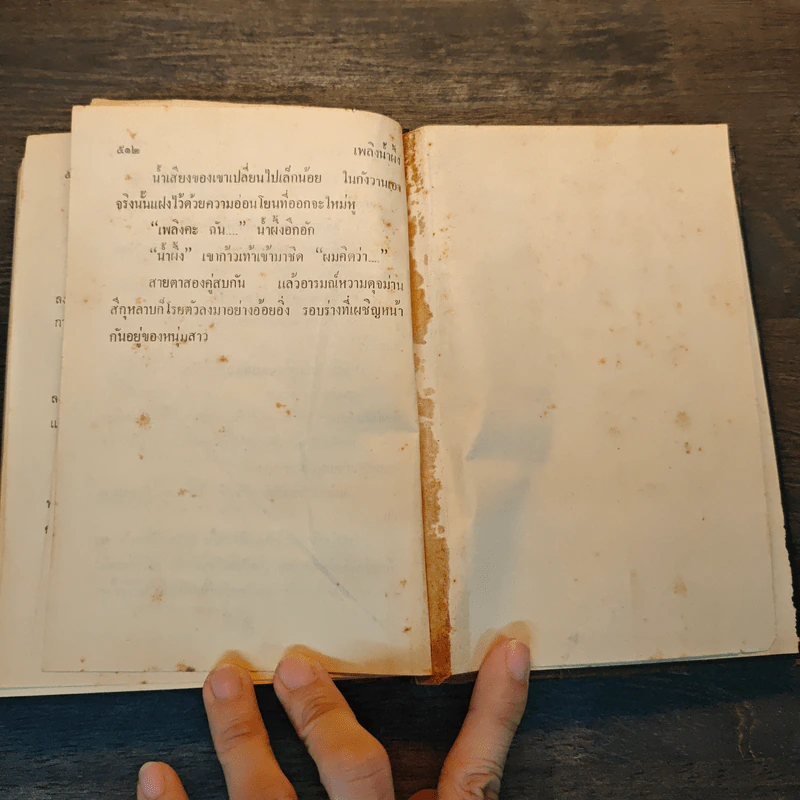 ๕๑๒ เพลิงน้ำผึ้ง
น้ำเสียงของเขาเปลี่ยนไปเล็กน้อย ในกังวานของ
จริงนั้นแฝงไว้ด้วยความอ่อนโยนที่ออกจะใหม่หู
“เพลิงคะ ฉัน....” น้ำผึ้งอึกอัก
“น้ำผึ้ง” เขาก้าวเท้าเข้ามาชิด “ผมคิดว่า....”
สายตาสองคู่สบกัน แล้วอารมณ์หวามดุจม่าน
สีกุหลาบก็โรยตัวลงมาอย่างอ้อยอิ่ง รอบร่างที่เผชิญหน้า
กันอยู่ของหนุ่มสาว